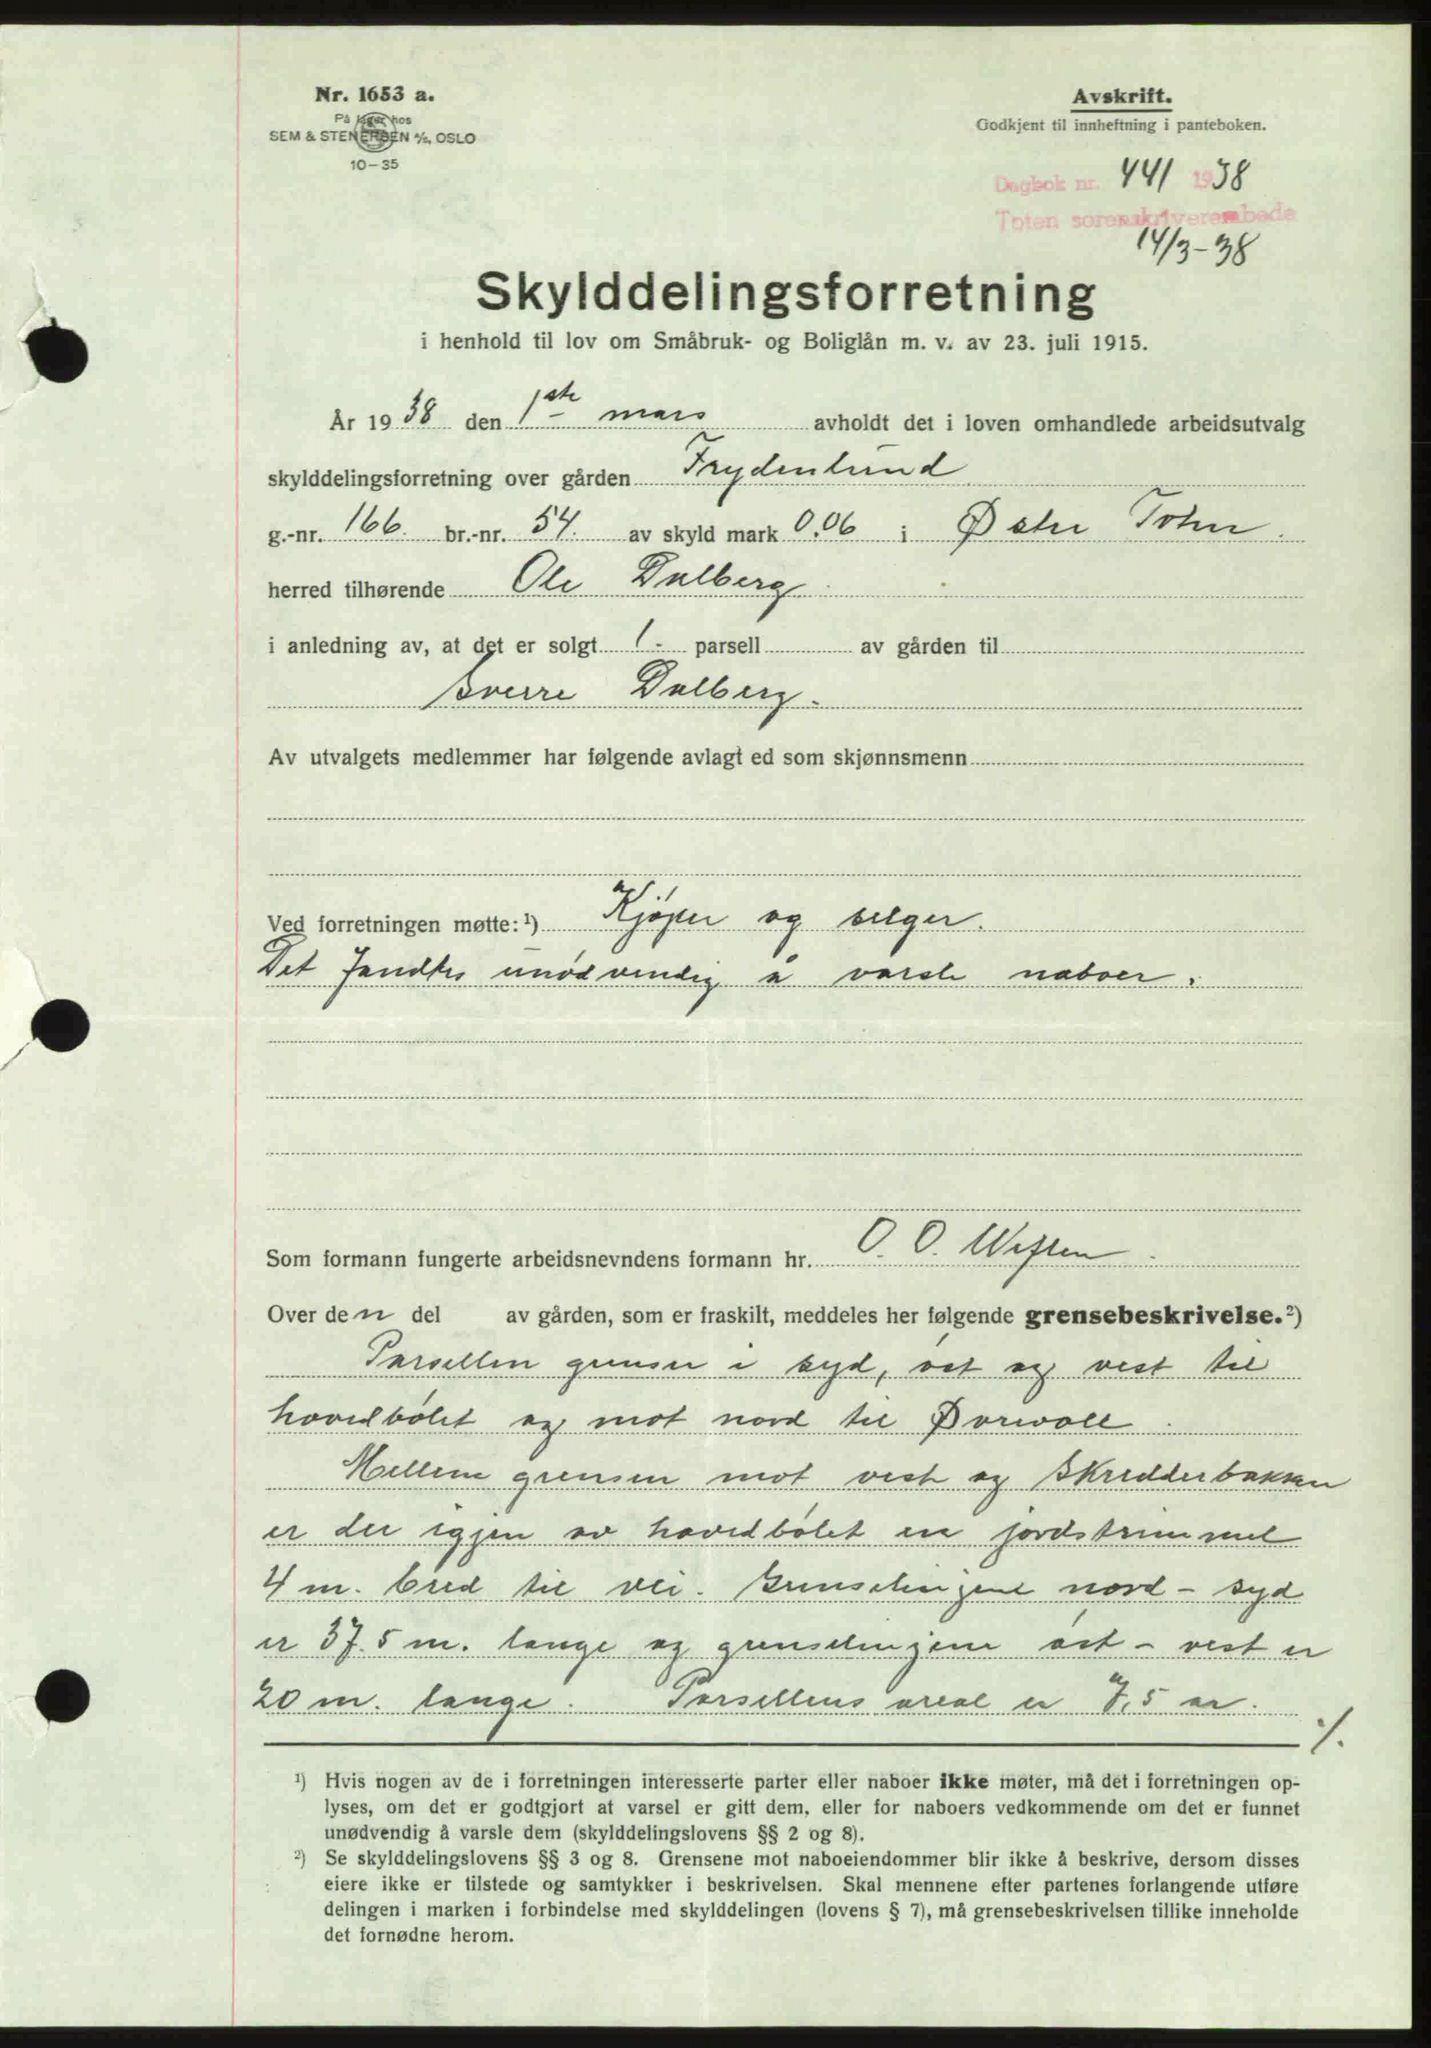 Nr. 1653 a.
På lager hos
SEM & STENERSEN A/S, OSLO
10-35
Avskrift.
Godkjent til innheftning i panteboken.
Dagbok nr. 441 1938
Toten sorenskriverembede
14/3-38
Skylddelingsforretning
i henhold til lov om Småbruk- og Boliglån m. v. av 23. juli 1915.
År 1938 den 1ste mars avholdt det i loven omhandlede arbeidsutvalg
skylddelingsforretning over gården Frydenlund
g.-nr. 166. br.-nr. 54. av skyld mark 0,06 i Østre Toten.
herred tilhørende Ole Dalberg
i anledning av, at det er solgt 1- parsell av gården til
Sverre Dalberg.
Av utvalgets medlemmer har følgende avlagt ed som skjønnsmenn
Ved forretningen møtte: ¹) Kjøper og selger.
Det fandtes unødvendig å varsle naboer.
Som formann fungerte arbeidsnevndens formann hr. O. O.
Over den del av gården, som er fraskilt, meddeles her følgende grensebeskrivelse.²)
Parsellen grenser i syd, øst og vest til
hovedbølet og mot nord til Ørevoll.
Mellem grensen mot vest og Skredderbakken
er der igjen av hovedbølet en jordstrimmel
4 m. bred til vei. Grenselinjene nord - syd
er 37.5 m. lange og grenselinjene øst - vest er
20 m. lange. Parsellens areal er 7,5 ar.
./.
¹) Hvis nogen av de i forretningen interesserte parter eller naboer ikke møter, må det i forretningen op-
lyses, om det er godtgjort at varsel er gitt dem, eller for naboers vedkommende om det er funnet
unødvendig å varsle dem (skylddelingslovens §§ 2 og 8).
²) Se skylddelingslovens §§ 3 og 8. Grensene mot naboeiendommer blir ikke å beskrive, dersom disses
eiere ikke er tilstede og samtykker i beskrivelsen. Skal mennene efter partenes forlangende utføre
delingen i marken i forbindelse med skylddelingen (lovens § 7), må grensebeskrivelsen tillike inneholde
det fornødne herom.